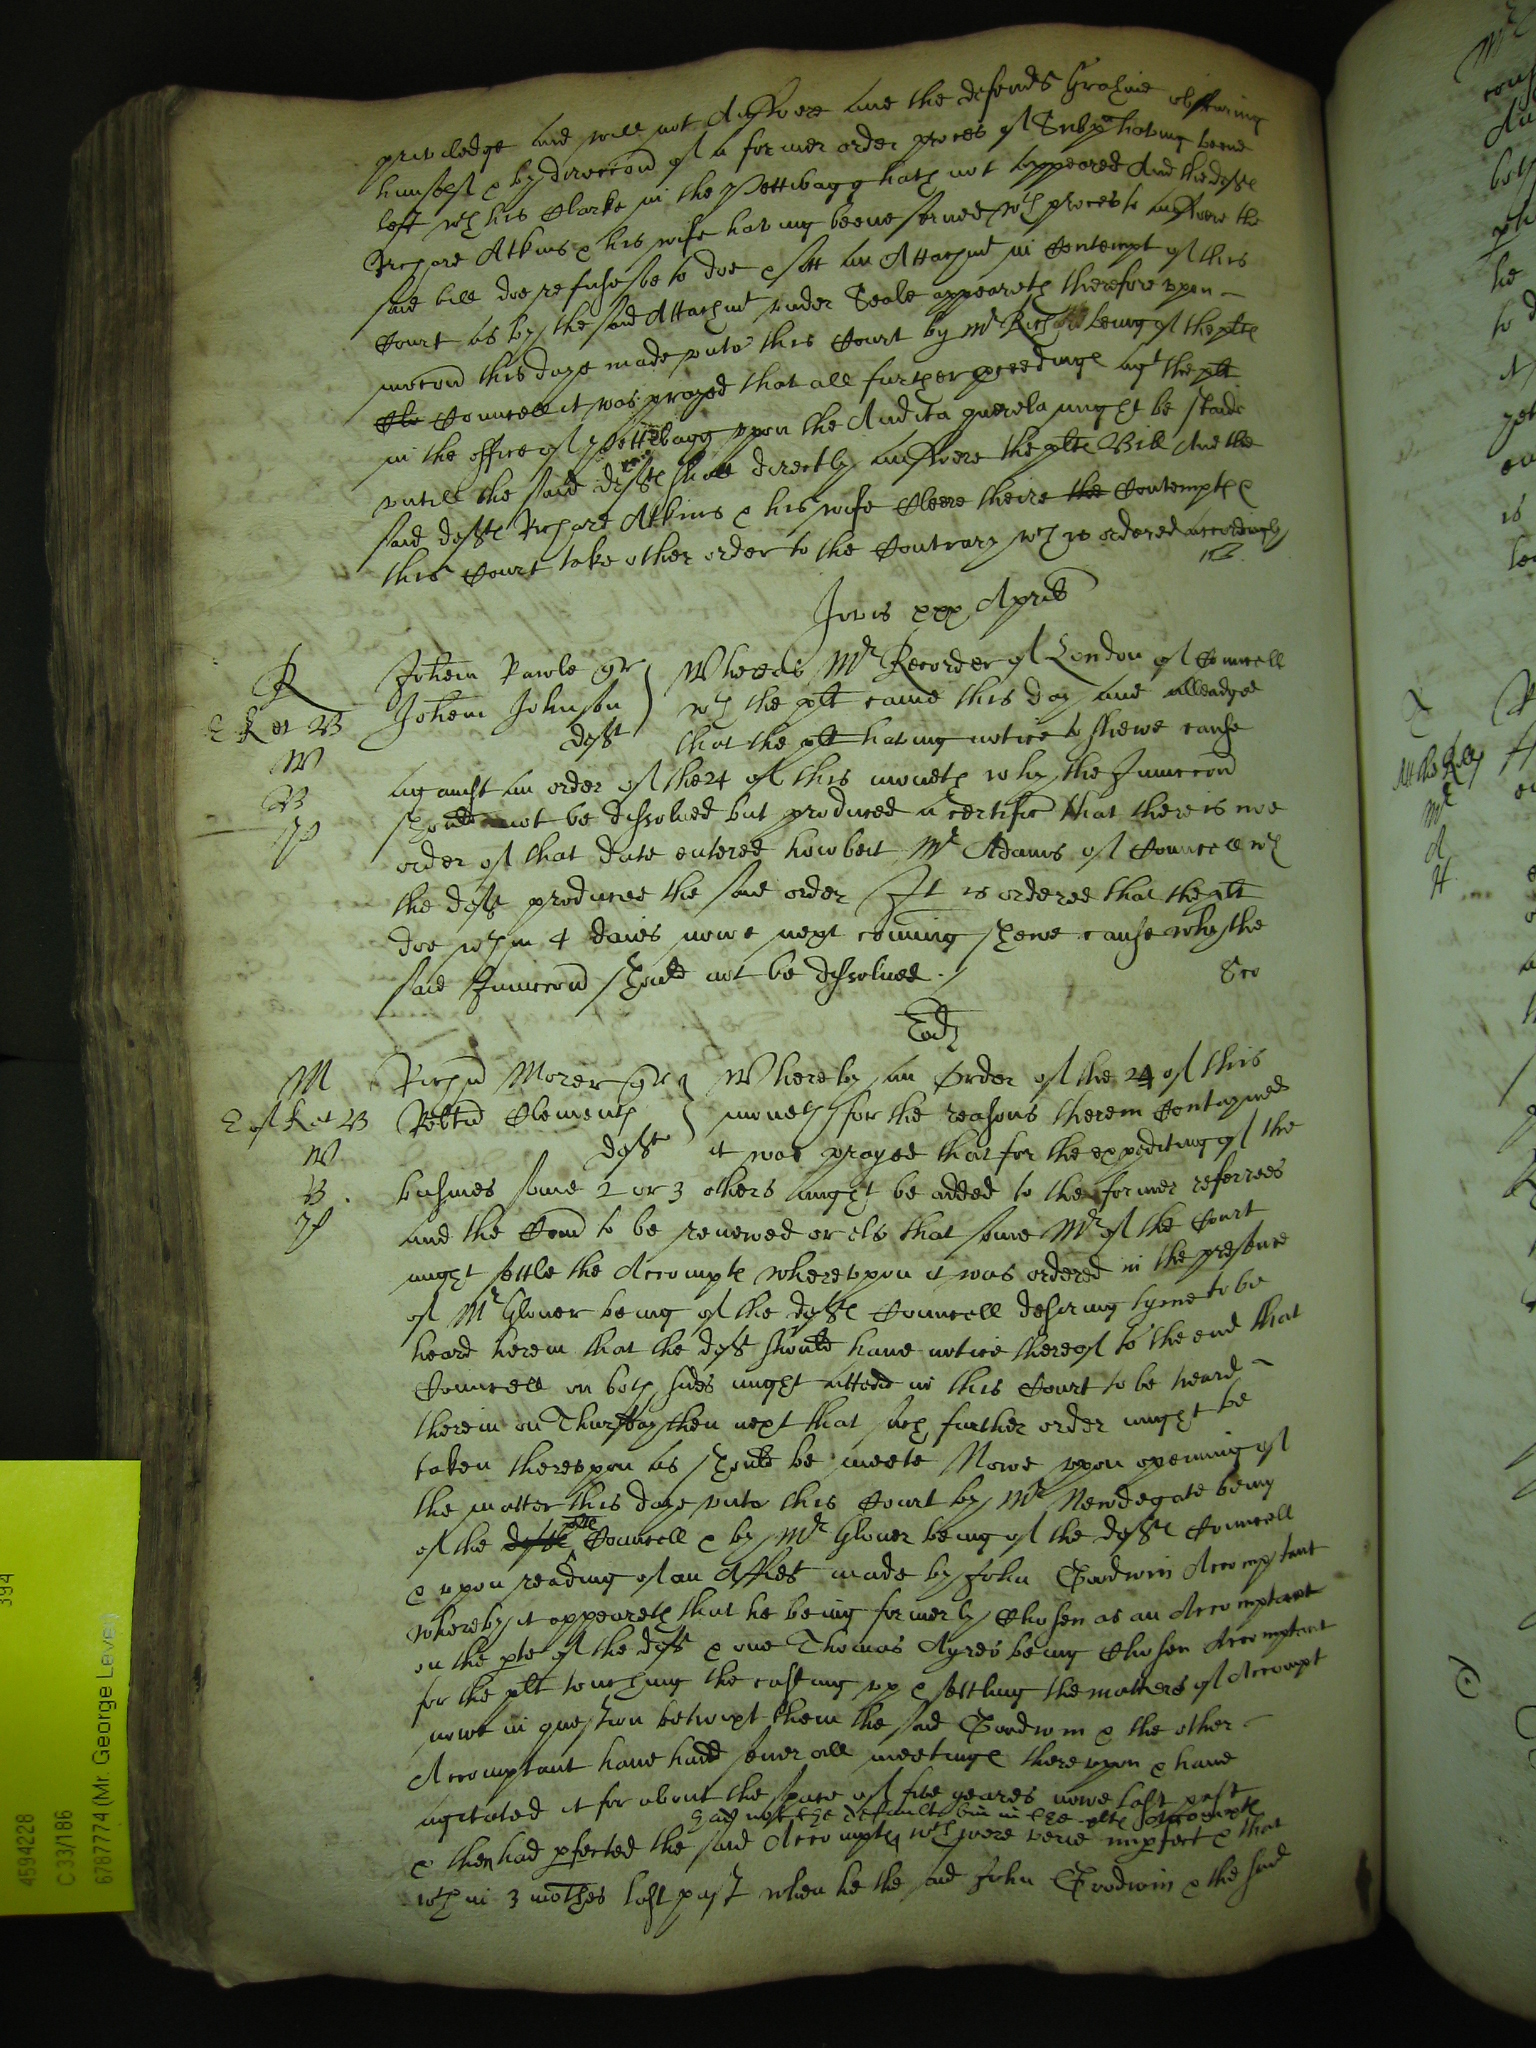 priviledge and will not Answere and the defends Grahme absenting
himself & by direccon of a former order proces of Subpa having beene
left wth his Clarke in the Pettibagg hath not appeared And the defts
Richard Atkins & his wife having beene served wth proces to answere the
said bill doe refuse so to doe & sitt an Attachmt in Contempt of this
Court as by the said Attachmt under Seale appeareth therefore upon
mocon this daye made unto this Court by Mr Rich being of the plts
Councell it was prayed that all further proceedings agt the plt
in the office of Pettibagg upon the Audita querela might be staid
untill the said defts shall directly answere the plts Bill And the
said defts Richard Atkins & his wife cleere theire the Contempts &
this Court take other order to the Contrary wch is ordered accordingly
Jovis xxx Aprilis
R Johem Rawle qr Wheras Mr Recorder of London of Councell
E R et B Johem Johnson wth the plt came this day and alleadged
W deft that the plt having notice to shewe cause
B against an order of the 24 of this moneth why the Iniuccon
should not be dissolued but produced a certifict that there is noe
order of that date entered howbeit Mr Adams of Councell wth
the deft produced the said order It is ordered that the plt
doe wthin 4 daies nowe next coming shewe cause why the
said Iniuccon should not be dissolued.
Eod
M Richum Morer qr Whereby an Order of the 24 of this
E of R et B Robtum Clements moneth for the reasons therein Contayned
W deft it was prayed that for the expediting of the
B. busines some 2 or 3 others might be added to the former referrees
and the Comn to be renewed or els that some Mr of the Court
might settle the Accompts whereupon it was ordered in the presence
of Mr Glover being of the defts Councell desiring tyme to be
heard herein that the deft should have notice thereof to the end that
Councell on both sides might attend in this Court to be heard
therein on Thursday then next that such further order might be
taken thereupon as should be meete Nowe upon opening of
the matter this daye unto this Court by Mr Newdegate being
of the defts plts Councell & by Mr Glover being of the defts Councell
& upon reading of an Affidt made by John Goodwin Accomptant
whereby it appeareth that he being formerly Chosen as an Accomptant
on the pte of the deft & one Thomas Ayres being Chosen Accomptant
for the plt touching the casting up & settling the matters of Accompt
nowe in question betwixt them the said Goodwin & the other
Accomptant have hadd severall meetings thereupon & have
agitated it for about the space of five yeares nowe last past
had not the default bin in the plts Accompts
& then had pfected the said Accompts wch were verie imperfect & that
wthin 3 mothes last past when he the said John Goodwin & the said
4594228
C 33/186
6787774 (Mr. George Leves)
394